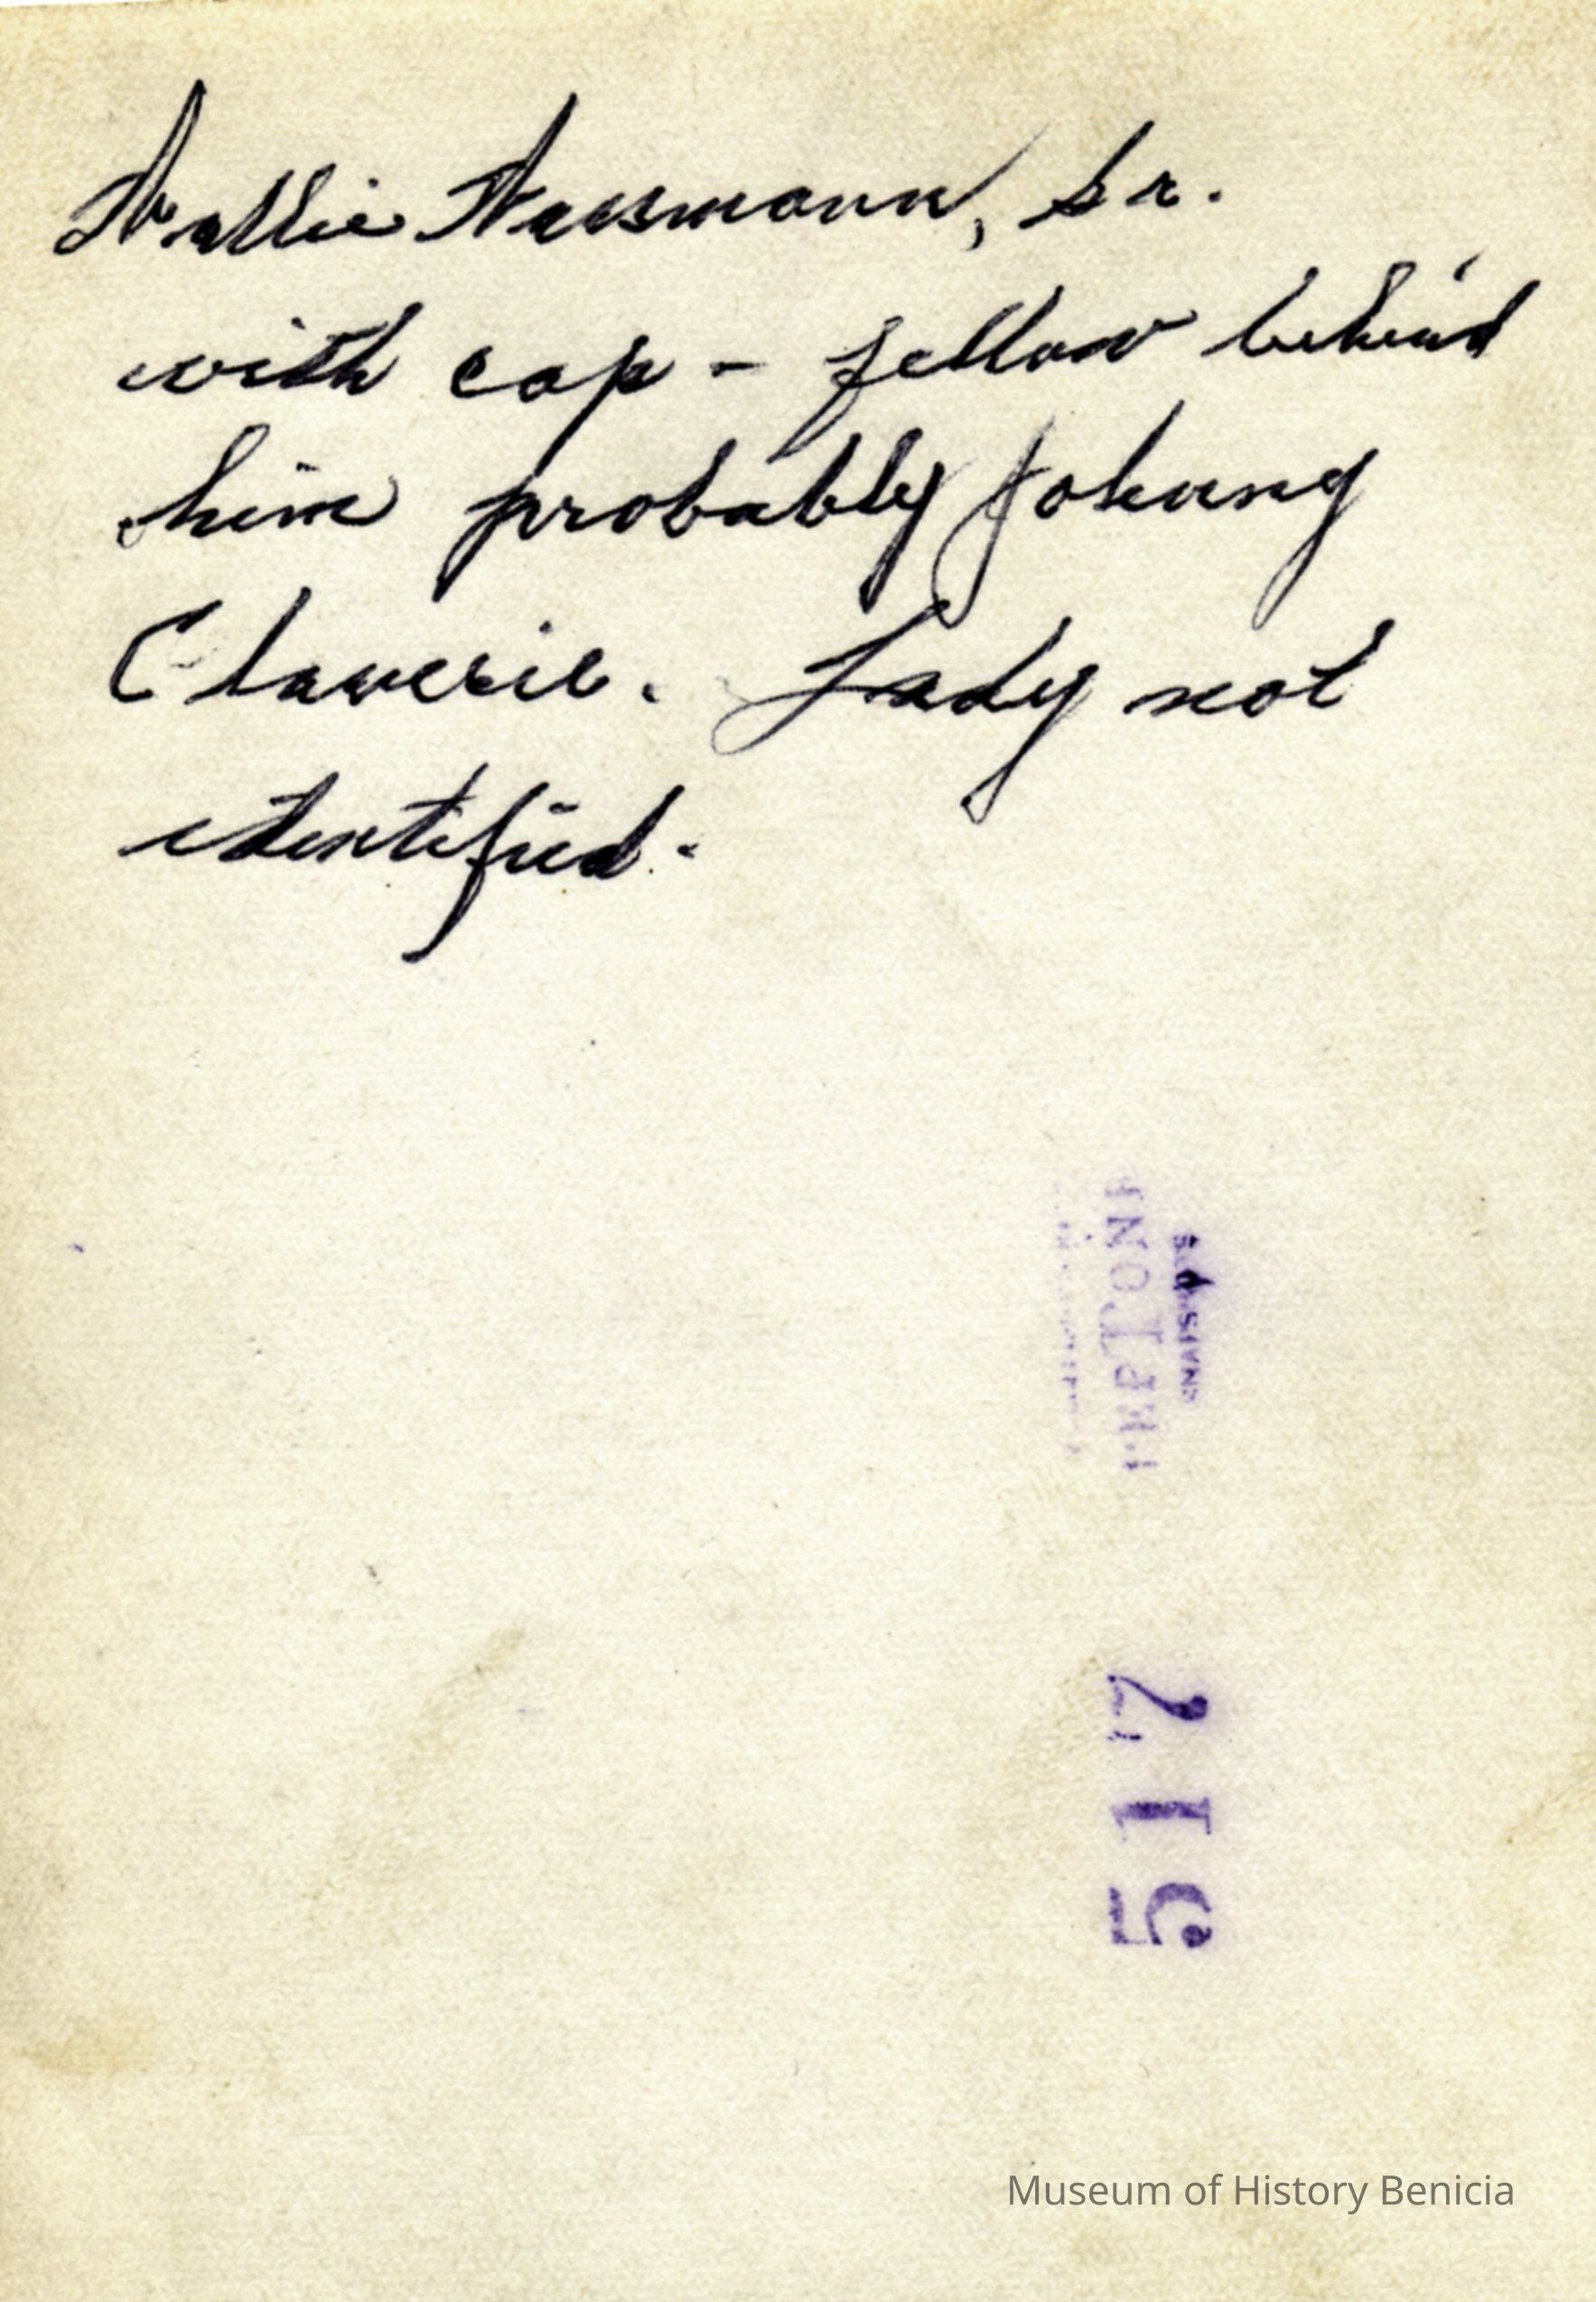 Wallie Wassmann, Sr.
with cap - fellow behind
him probably Johnny
Claverie. Lady not
identified.
517
Museum of History Benicia